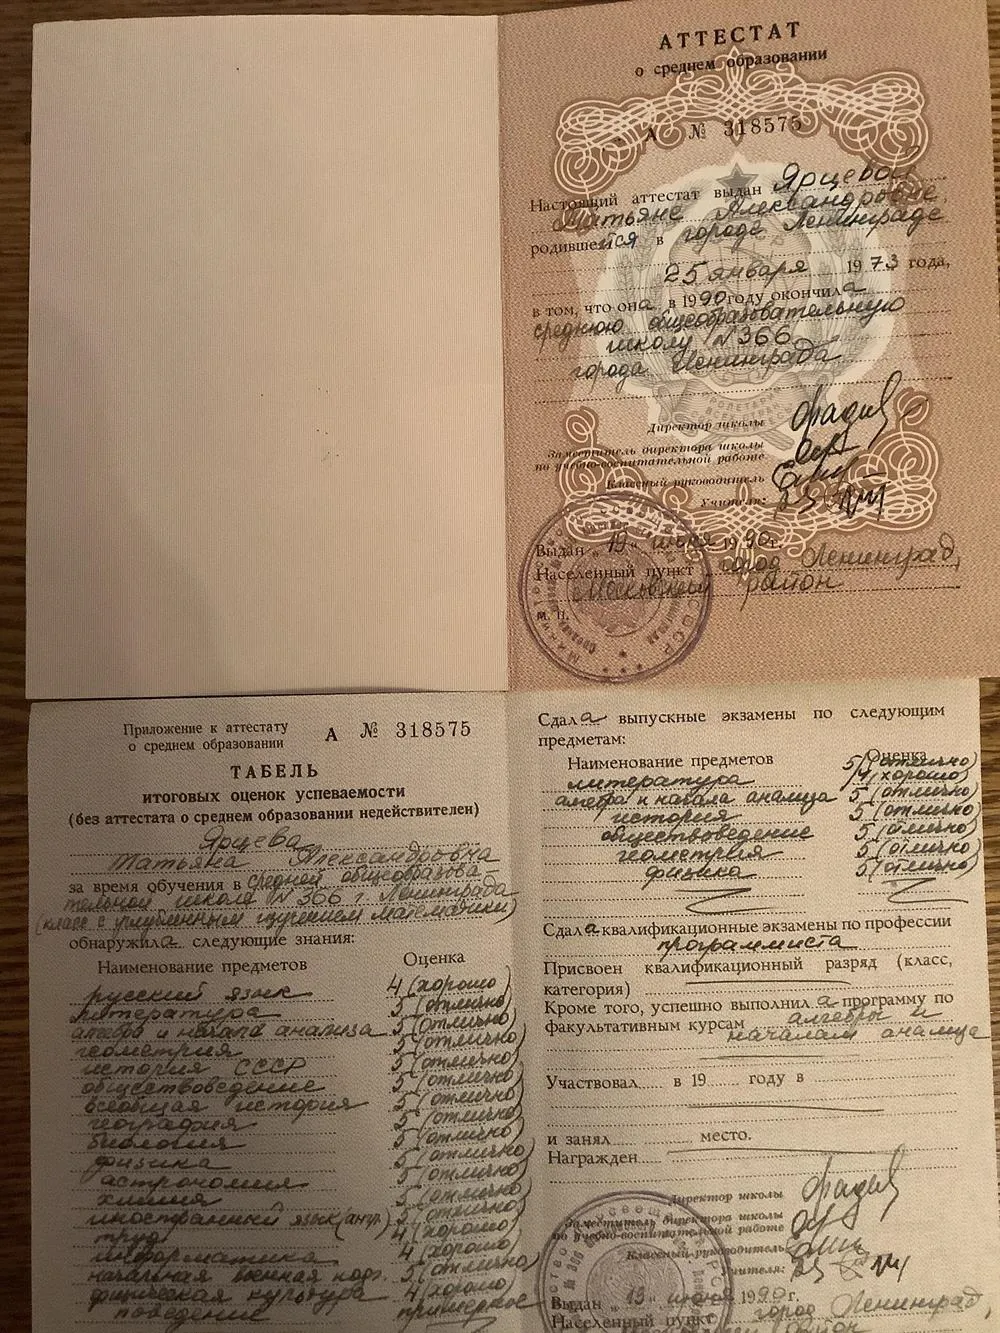 АТТЕСТАТ
о среднем образовании
А № 318575
Настоящий аттестат выдан Ярцевой
Татьяне Александровне,
родившейся в городе Ленинграде
25 января 1973 года,
в том, что она в 1990 году окончила
среднюю общеобразовательную
школу №366
города Ленинграда
Директор школы
Заместитель директора школы
по учебно-воспитательной работе
Классный руководитель
Учителя:
Выдан „19“ июня 1990г.
Населенный пункт город Ленинград,
Московский район
м. п.
Приложение к аттестату
о среднем образовании
А № 318575
ТАБЕЛЬ
итоговых оценок успеваемости
(без аттестата о среднем образовании недействителен)
Ярцева
Татьяна Александровна
за время обучения в средней общеобразова
тельной школе №366 г. Ленинграда
(класс с углубленным изучением математики)
обнаружила следующие знания:
Наименование предметов Оценка
русский язык 4 (хорошо)
литература 5 (отлично)
алгебра и начала анализа 5 (отлично)
геометрия 5 (отлично)
история СССР 5 (отлично)
обществоведение 5 (отлично)
всеобщая история 5 (отлично)
география 5 (отлично)
биология 5 (отлично)
физика 5 (отлично)
астрономия 5 (отлично)
химия 5 (отлично)
иностранный язык (англ.) 5 (отлично)
труд 4 (хорошо)
информатика 4 (хорошо)
начальная военная подг. 5 (отлично)
физическая культура 4 (хорошо)
поведение примерное
Сдала выпускные экзамены по следующим
предметам:
Наименование предметов Оценка
литература 5 (отлично)
/4 (хорошо)
алгебра и начала анализа 5 (отлично)
история 5 (отлично)
обществоведение 5 (отлично)
геометрия 5 (отлично)
физика 5 (отлично)
Сдала квалификационные экзамены по профессии
программиста
Присвоен квалификационный разряд (класс,
категория)
Кроме того, успешно выполнила программу по
факультативным курсам алгебры и
началам анализа
Участвовал в 19 году в
и занял место.
Награжден
Директор школы
Заместитель директора школы
по учебно-воспитательной работе
Классный руководитель
Учителя:
Выдан „19“ июня 1990г.
Населенный пункт город Ленинград,
район